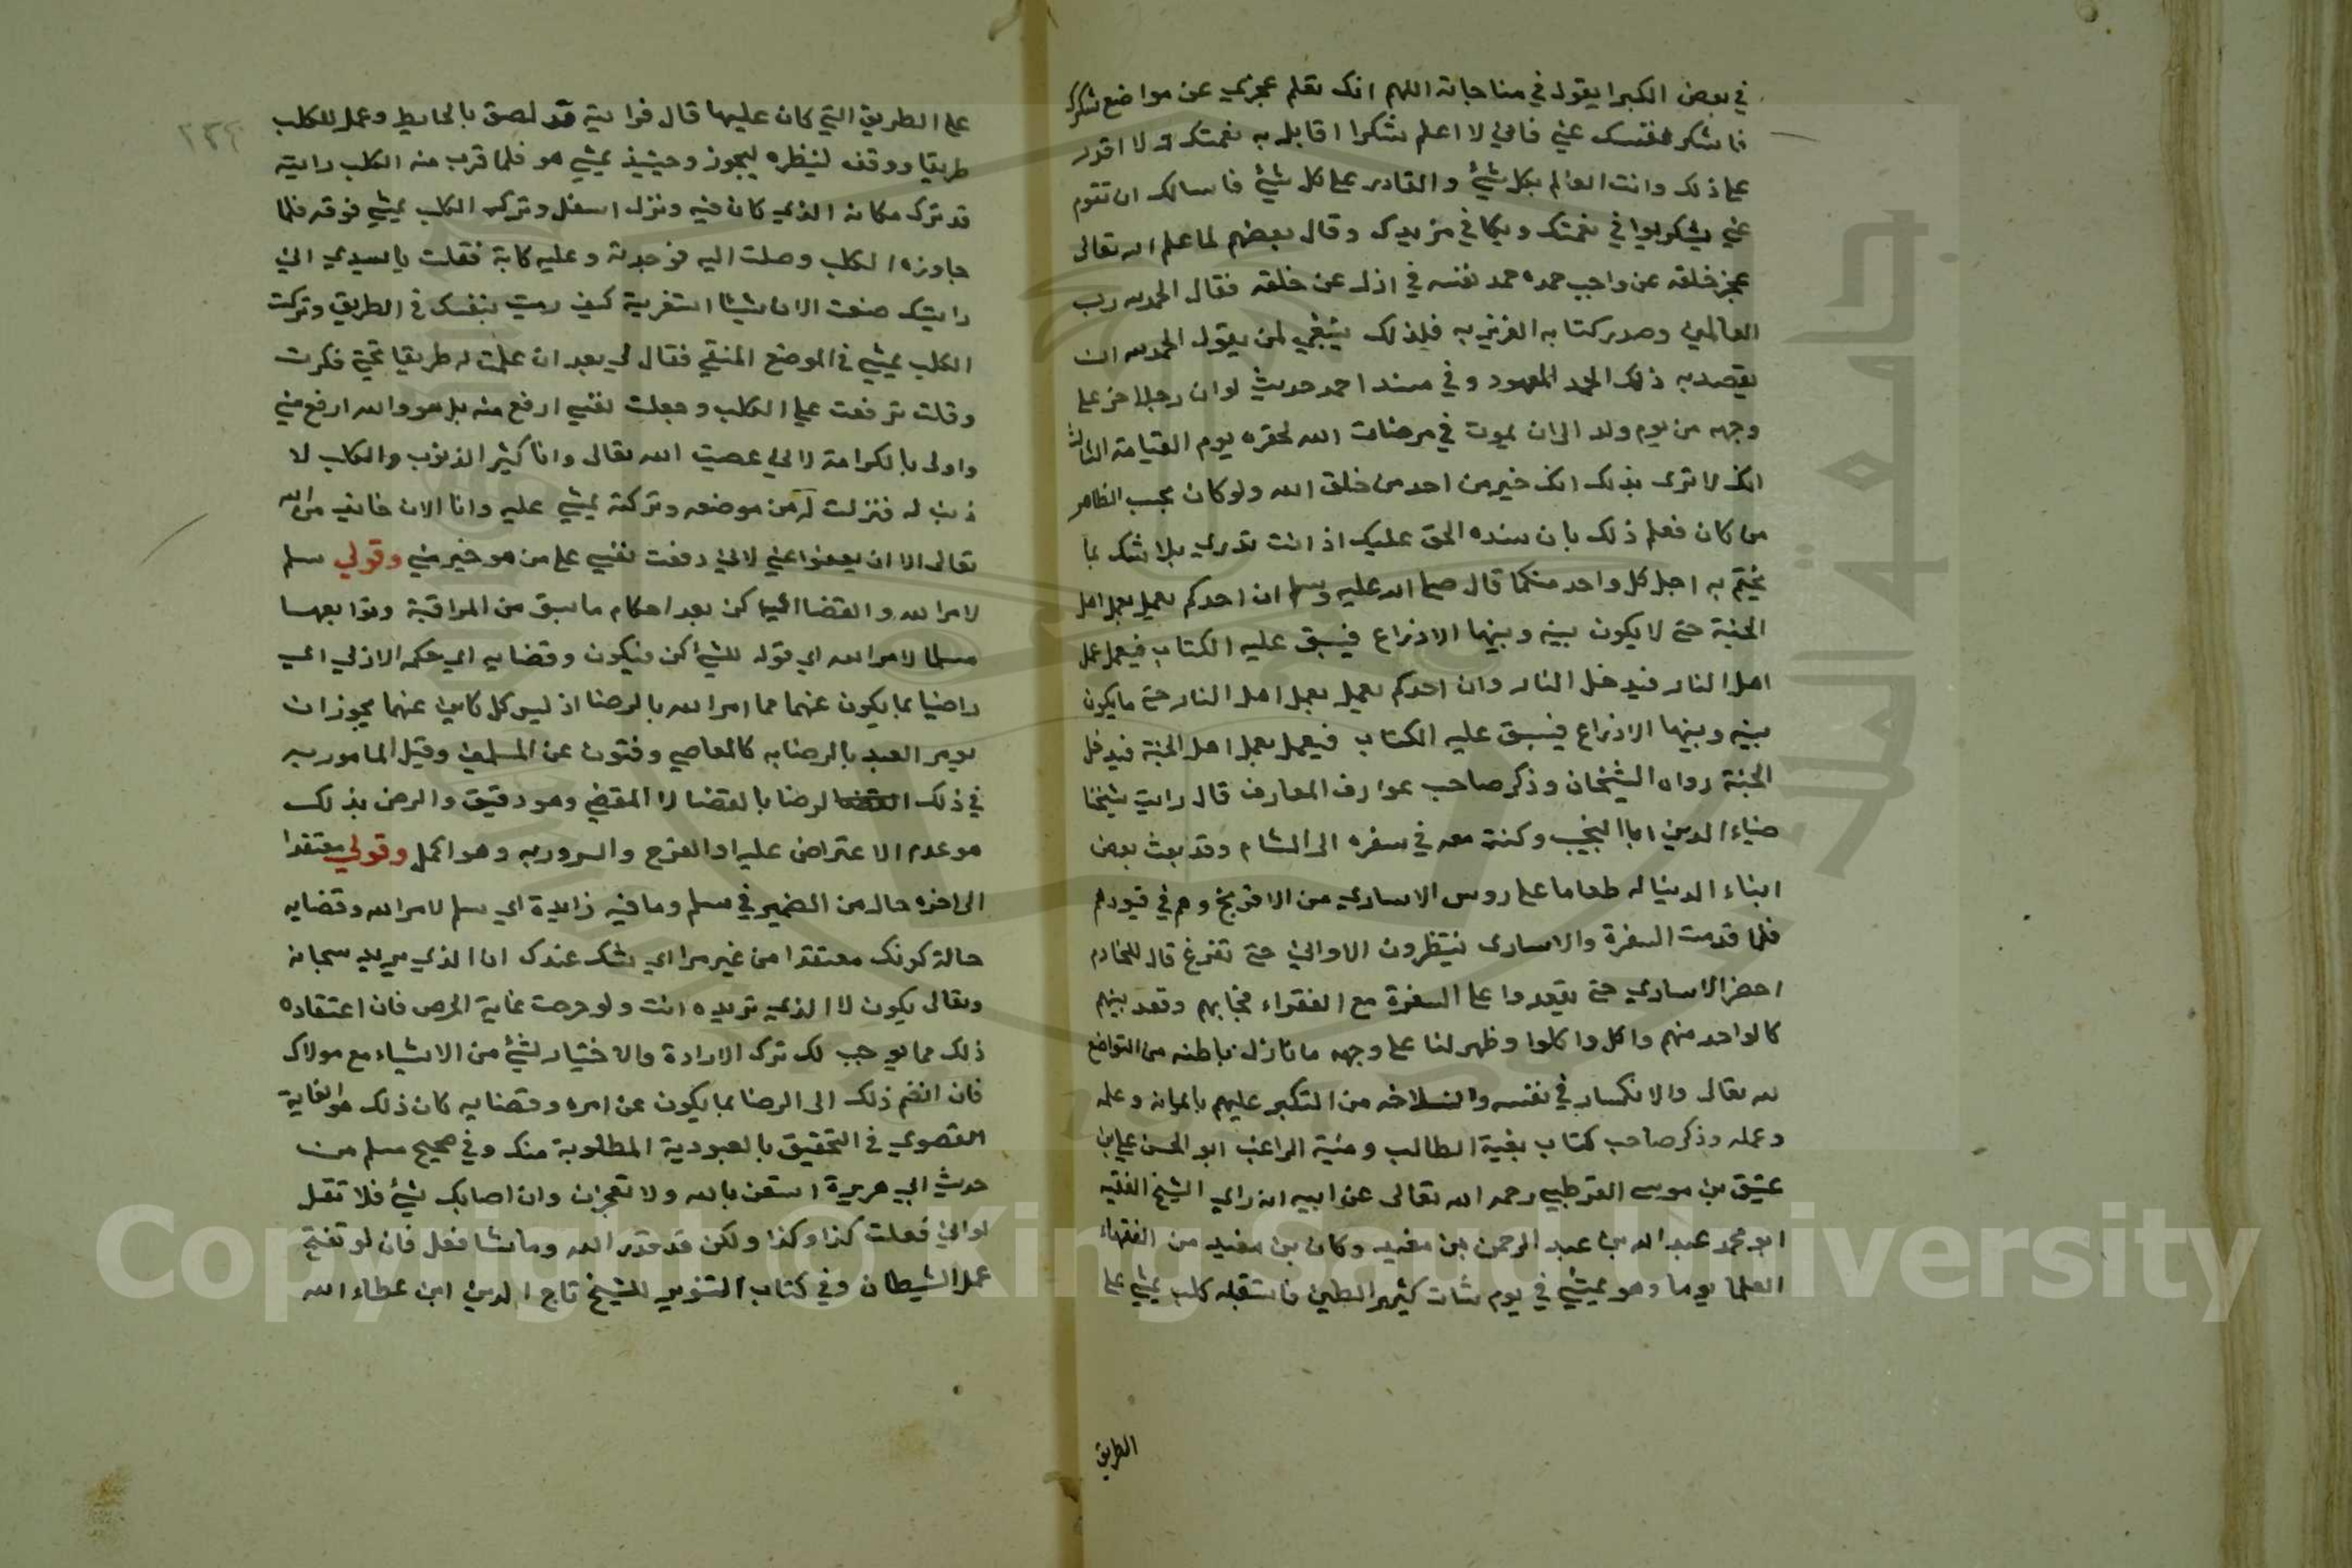 في بعض الكبرا يقول في مناجاته اللهم انك تعلم عجزي عن مواضع شكرك
فاشكر نفسك عني فاني لا اعلم شكرا اقابل به نعمتك ولا اقدر
على ذلك وانت العالم بكل شيئ والقادر على كل شيئ فاسالك ان تقوم
عني بشكر يوافي نعمتك ويكافي مزيدك وقال بعضهم لما علم الله تعالى
عجز خلقه عن واجب حمده حمد نفسه في ازل عن خلقه فقال الحمد لله رب
العالمين وصدر كتابه العزيز به فلذلك ينبغي لمن يقول الحمد لله ان
يقصد به ذلك الحمد المعهود وفي مسند احمد حديث لو ان رجلا خر على
وجهه من يوم ولد الى ان يموت في مرضات الله لحقره يوم القيامة الثالث
انك لا ترى بذلك انك خير من احد من خلق الله ولو كان بحسب الظاهر
من كان فعلم ذلك بان سنده الحق عليك اذ انت تدري بلا شك بما
يختم به اجل كل واحد منكما قال صلى الله عليه وسلم ان احدكم يعمل بعمل اهل
الجنة حتى لا يكون بينه وبينها الا ذراع فيسبق عليه الكتاب فيعمل عمل
اهل النار فيدخل النار وان احدكم يعمل بعمل اهل النار حتى ما يكون
بينه وبينها الا ذراع فيسبق عليه الكتاب فيعمل بعمل اهل الجنة فيدخل
الجنة رواه الشيخان وذكر صاحب عوارف المعارف قال رايت شيخنا
ضياء الدين ابا النجيب وكنت معه في سفره الى الشام وقد بعث بعض
ابناء الدنيا له طعاما على روس الاسارى من الافرنج وهم في قيودهم
فلما قدمت السفرة والاسارى ينتظرون الاواني حتى تفرغ قال للخادم
احضر الاسارى حتى يقعدوا على السفرة مع الفقراء فجا بهم وقعد بينهم
كالواحد منهم واكل واكلوا وظهر لنا على وجهه ما نازل باطنه من التواضع
لله تعالى والانكسار في نفسه وانسلاخه من التكبر عليهم بايمانه وعلمه
وعمله وذكر صاحب كتاب بغية الطالب ومنية الراغب ابو الحسن علي بن
عتيق بن موسى القرطبي رحمه الله تعالى عن ابيه انه راي الشيخ الفقيه
ابو محمد عبد الله بن عبد الرحمن بن مفيد وكان بن مفيد من الفقهاء
العلما يوما وهو يمشي في يوم شات كثير الطين فاستقبله كلب يمشي على
الطريق
على الطريق التي كان عليها قال فرايته قد لصق بالحايط وعمل للكلب
طريقا ووقف لينظره ليجوز وحينيذ يمشي هو فلما قرب منه الكلب رايته
قد ترك مكانه الذي كان فيه ونزل اسفل وترك الكلب يمشي فوقه فلما
جاوزه الكلب وصلت اليه فوجدته وعليه كابة فقلت يا سيدي اني
رايتك صنعت الان شيئا استغربته كيف رميت بنفسك في الطريق وتركت
الكلب يمشي في الموضع المنقي فقال لي بعد ان علمت له طريقا تحتي فكرت
وقلت ترفعت على الكلب وجعلت نفسي ارفع منه بل هو والله ارفع مني
واولى بالكرامة لاني عصيت الله تعالى وانا كثير الذنوب والكلب لا
ذنب له فنزلت له من موضعه وتركته يمشي عليه وانا الان خايف من الله
تعالى الا ان يعفوا عني لاني رفعت نفسي على من هو خير مني وقولي سلم
لامر الله والقضا اي كن بعد احكام ما سبق من المراقبة وتوابعها
مسلما لامر الله اي قوله للشيئ كن فيكون وقضايه اي حكمه الازلي اي
راضيا بما يكون عنهما مما امر الله بالرضا اذ ليس كل كاين عنهما يجوز ان
يومر العبد بالرضا به كالمعاصي وفتون عن المسلمين وقيل المامور به
في ذلك الرضا بالقضا لا المقضي وهو دقيق والرضى بذلك
هو عدم الاعتراض عليه او الفرح والسرور به وهو اكمل وقولي معتقدا
الى اخره حال من الضمير في سلم وما فيه زايدة اي سلم لامر الله وقضايه
حالة كونك معتقدا من غير مرا اي شك عندك ان الذي يريده سبحانه
وتعالى يكون لا الذي تريده انت ولو حرصت غاية الحرص فان اعتقاده
ذلك مما يوجب لك ترك الارادة والاختيار لشيئ من الاشياء مع مولاك
فان انضم ذلك الى الرضا بما يكون عن امره وقضايه كان ذلك هو الغاية
القصوى في التحقيق بالعبودية المطلوبة منك وفي صحيح مسلم من
حديث ابي هريرة استعن بالله ولا تعجزن وان اصابك شيئ فلا تقل
لو اني فعلت كذا وكذا ولكن قد قدر الله وما شا فعل فان لو تفتح
عمل الشيطان وفي كتاب التنوير للشيخ تاج الدين ابن عطاء الله
Copyright © King Saud University